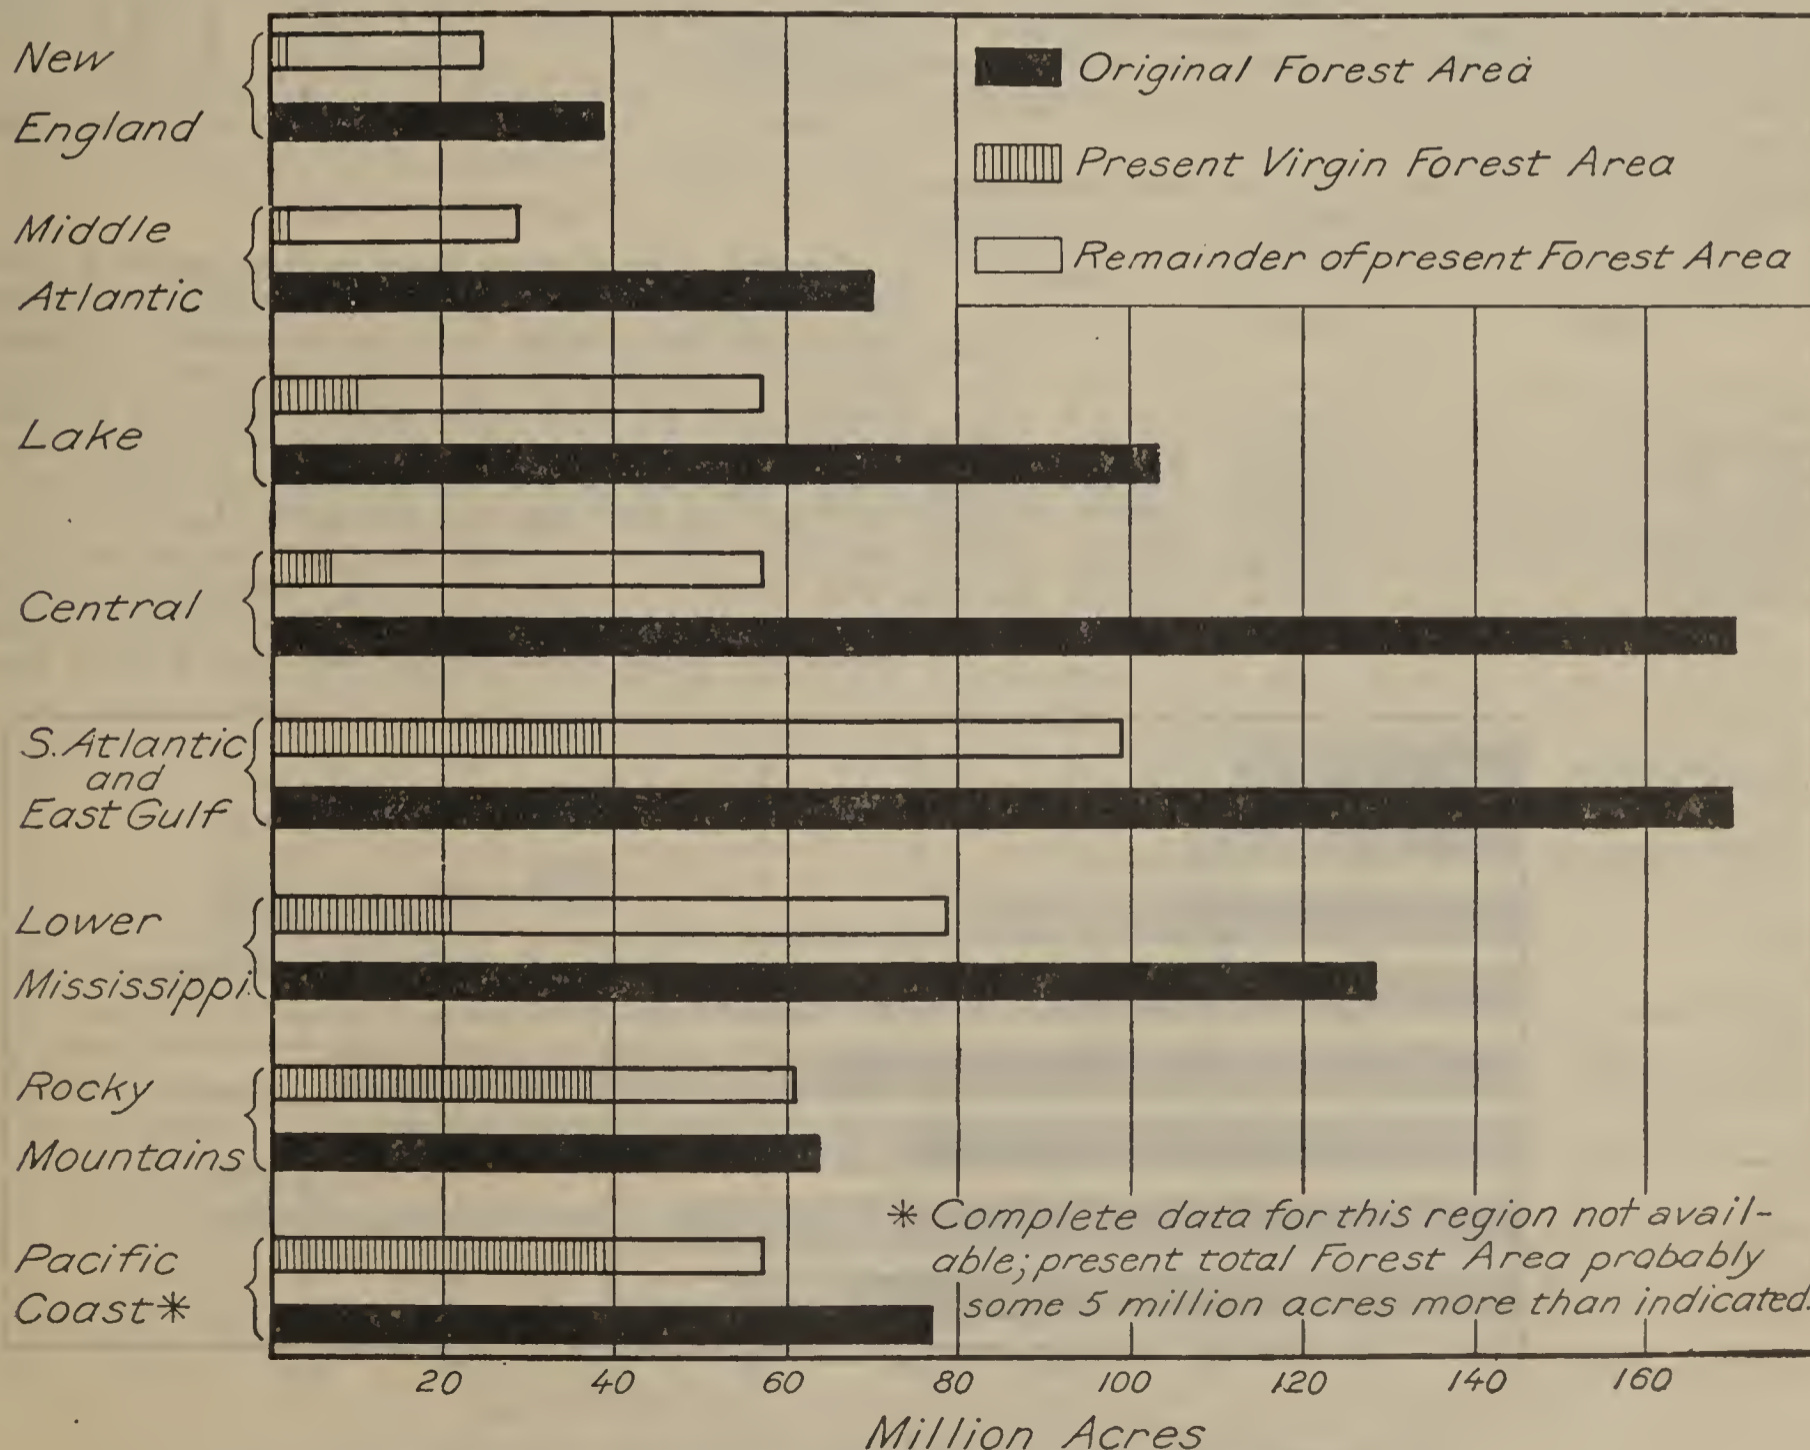 New
England
Middle
Atlantic
Lake
Central
S. Atlantic
and
East Gulf
Lower
Mississippi
Rocky
Mountains
Pacific
Coast*
Original Forest Area
Present Virgin Forest Area
Remainder of present Forest Area
* Complete data for this region not avail-
able; present total Forest Area probably
some 5 million acres more than indicated.
20 40 60 80 100 120 140 160
Million Acres